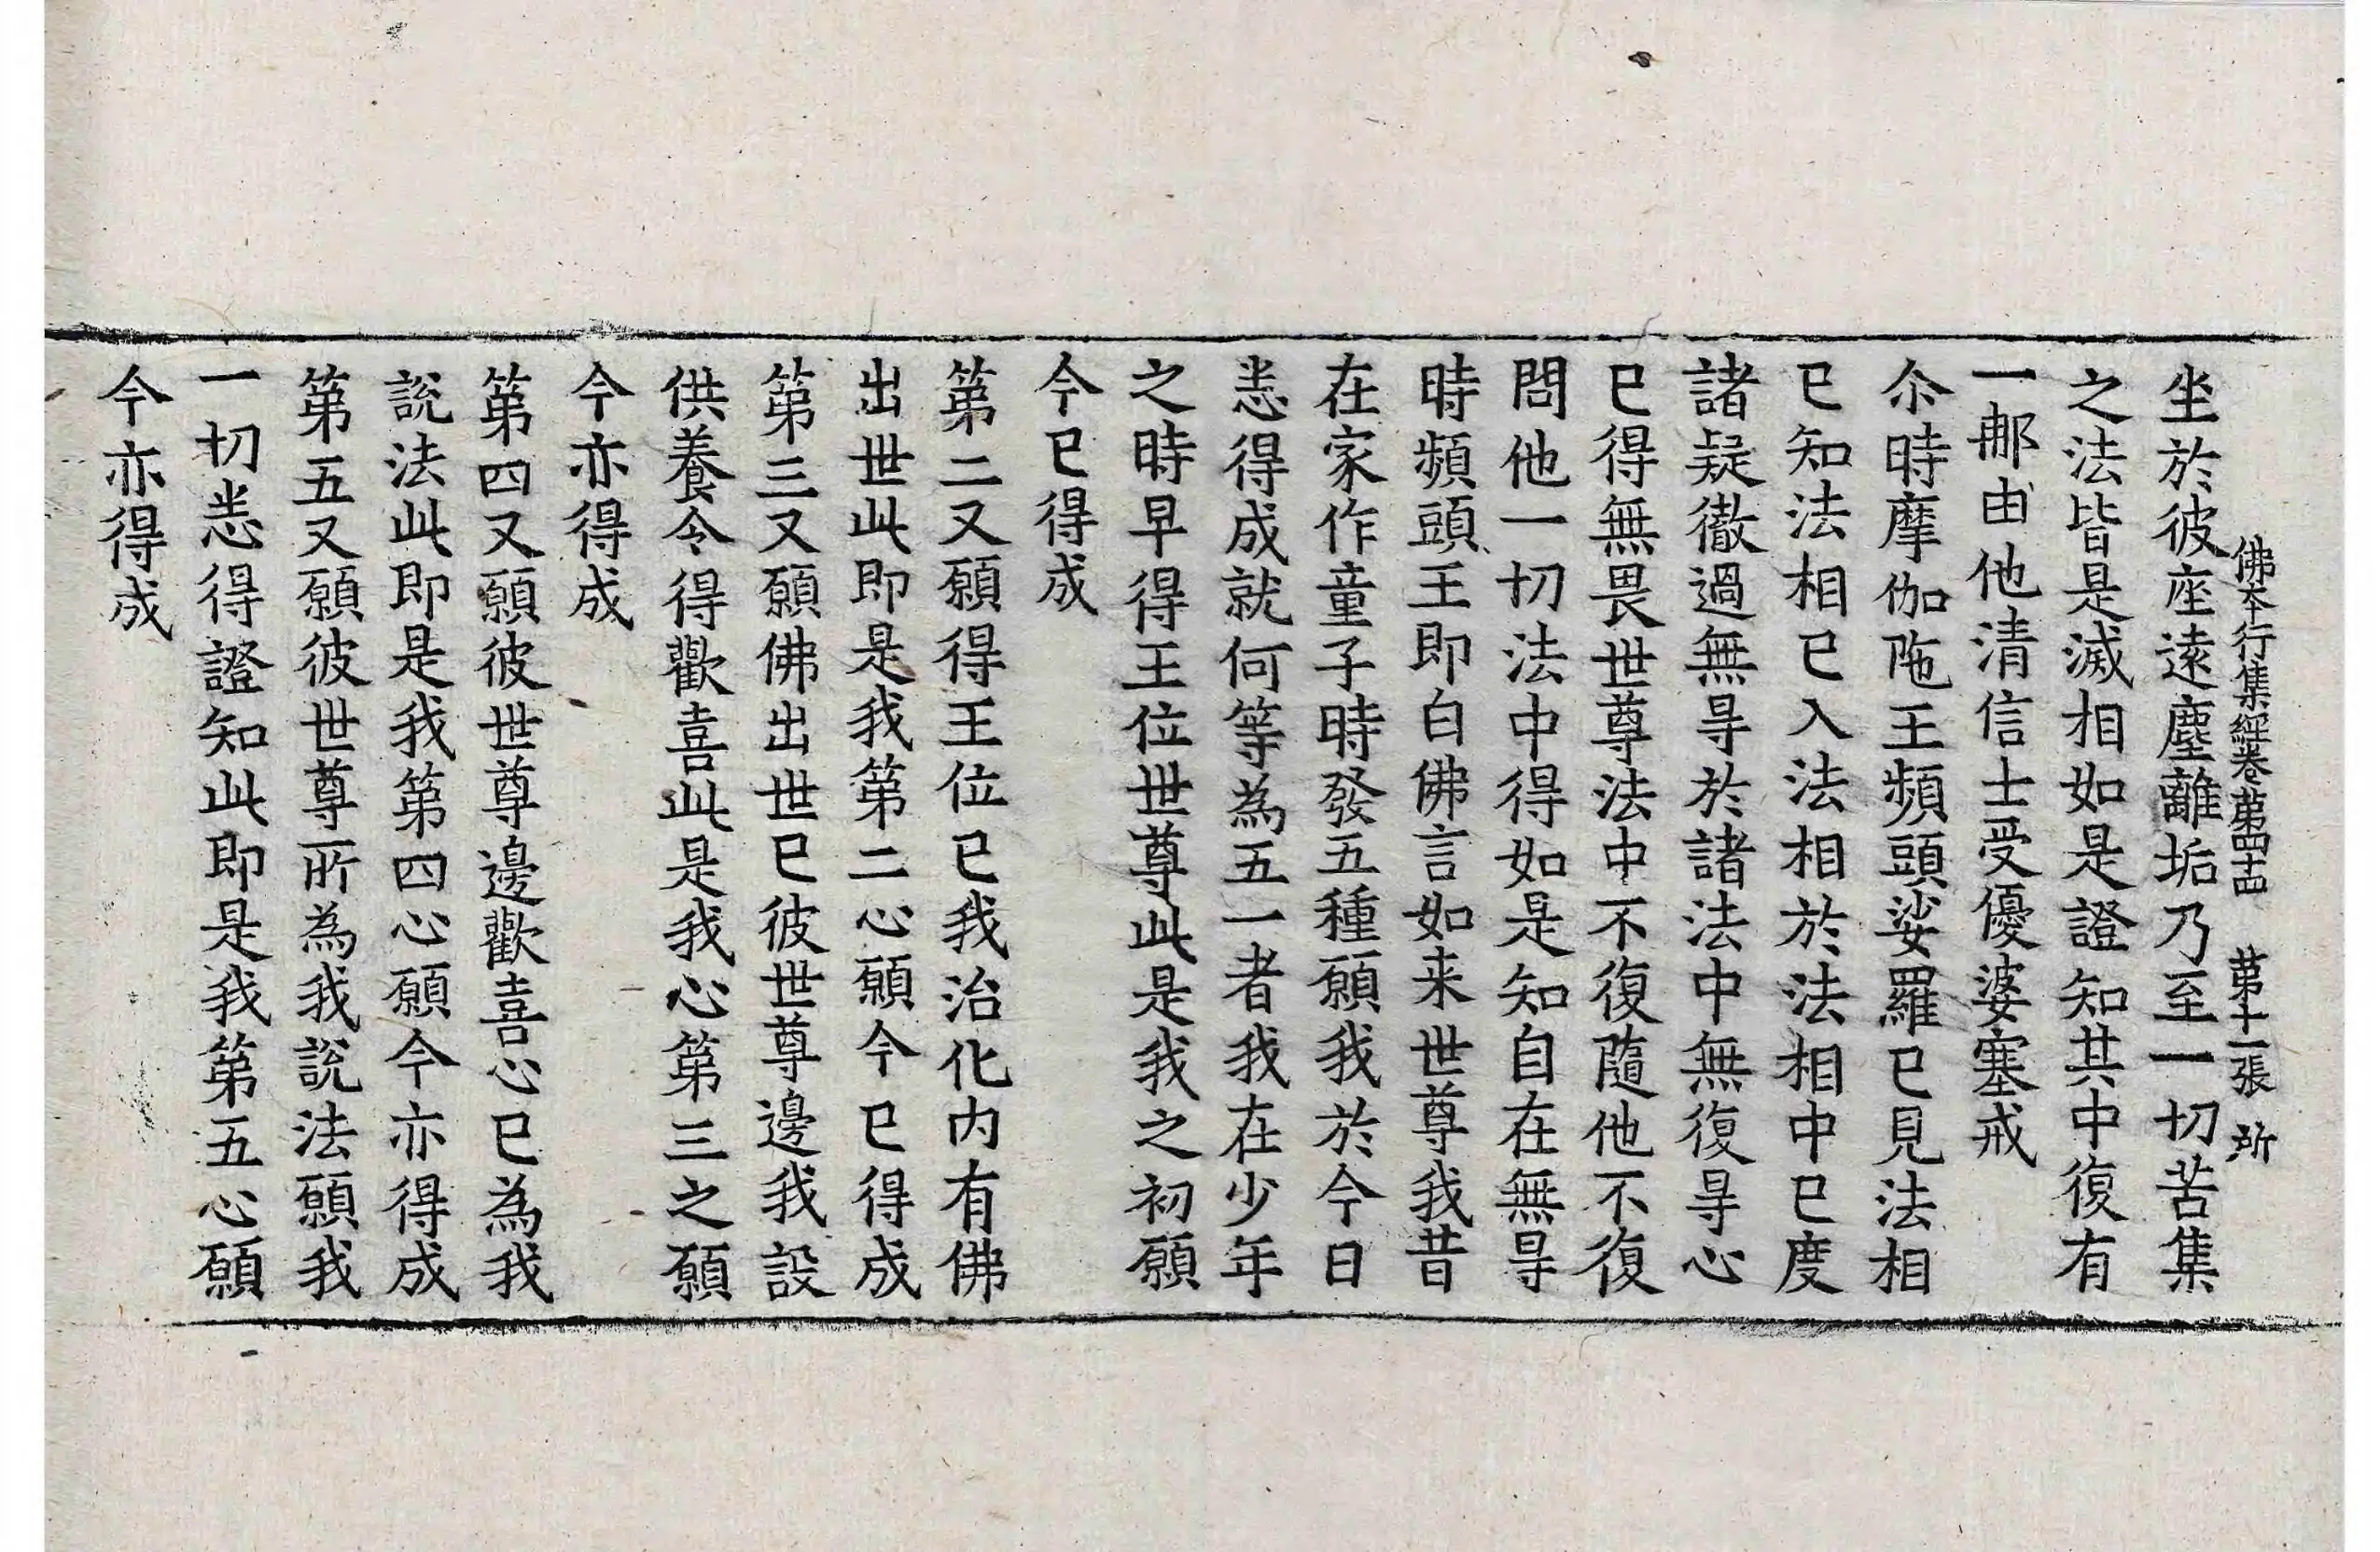 佛夲行集經卷第四十四　第十一張　所
坐於彼座遠塵離垢乃至一切苦集
之法皆是滅相如是證知其中復有
一那由他清信士受優婆塞戒
尒時摩伽陁王頻頭娑羅已見法相
已知法相已入法相於法相中已度
諸疑徹過無㝵於諸法中無復㝵心
已得無畏世尊法中不復隨他不復
問他一切法中得如是知自在無㝵
時頻頭王即白佛言如来世尊我昔
在家作童子時發五種願我於今日
悉得成就何等為五一者我在少年
之時早得王位世尊此是我之初願
今已得成
第二又願得王位已我治化内有佛
出世此即是我第二心願今已得成
第三又願佛出世已彼世尊邊我設
供養令得歡喜此是我心第三之願
今亦得成
第四又願彼世尊邊歡喜心已為我
說法此即是我第四心願今亦得成
第五又願彼世尊所為我說法願我
一切悉得證知此即是我第五心願
今亦得成